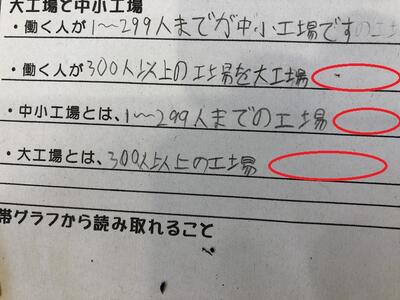 大工場と中小工場
・働く人が1〜299人までが中小工場です
・働く人が300人以上の工場を大工場
・中小工場とは、1〜299人までの工場
・大工場とは、300人以上の工場
帯グラフから読み取れること